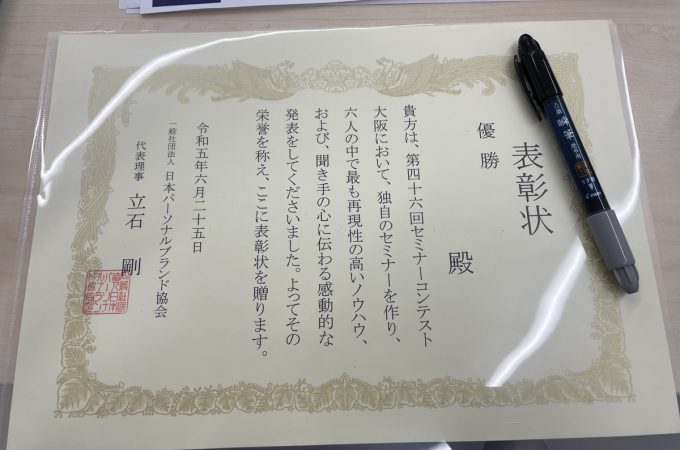 表彰状
優勝
殿
貴方は、第四十六回セミナーコンテスト
大阪において、独自のセミナーを作り、
六人の中で最も再現性の高いノウハウ、
および、聞き手の心に伝わる感動的な
発表をしてくださいました。よってその
栄誉を称え、ここに表彰状を贈ります。
令和五年六月二十五日
一般社団法人 日本パーソナルブランド協会
代表理事 立石 剛